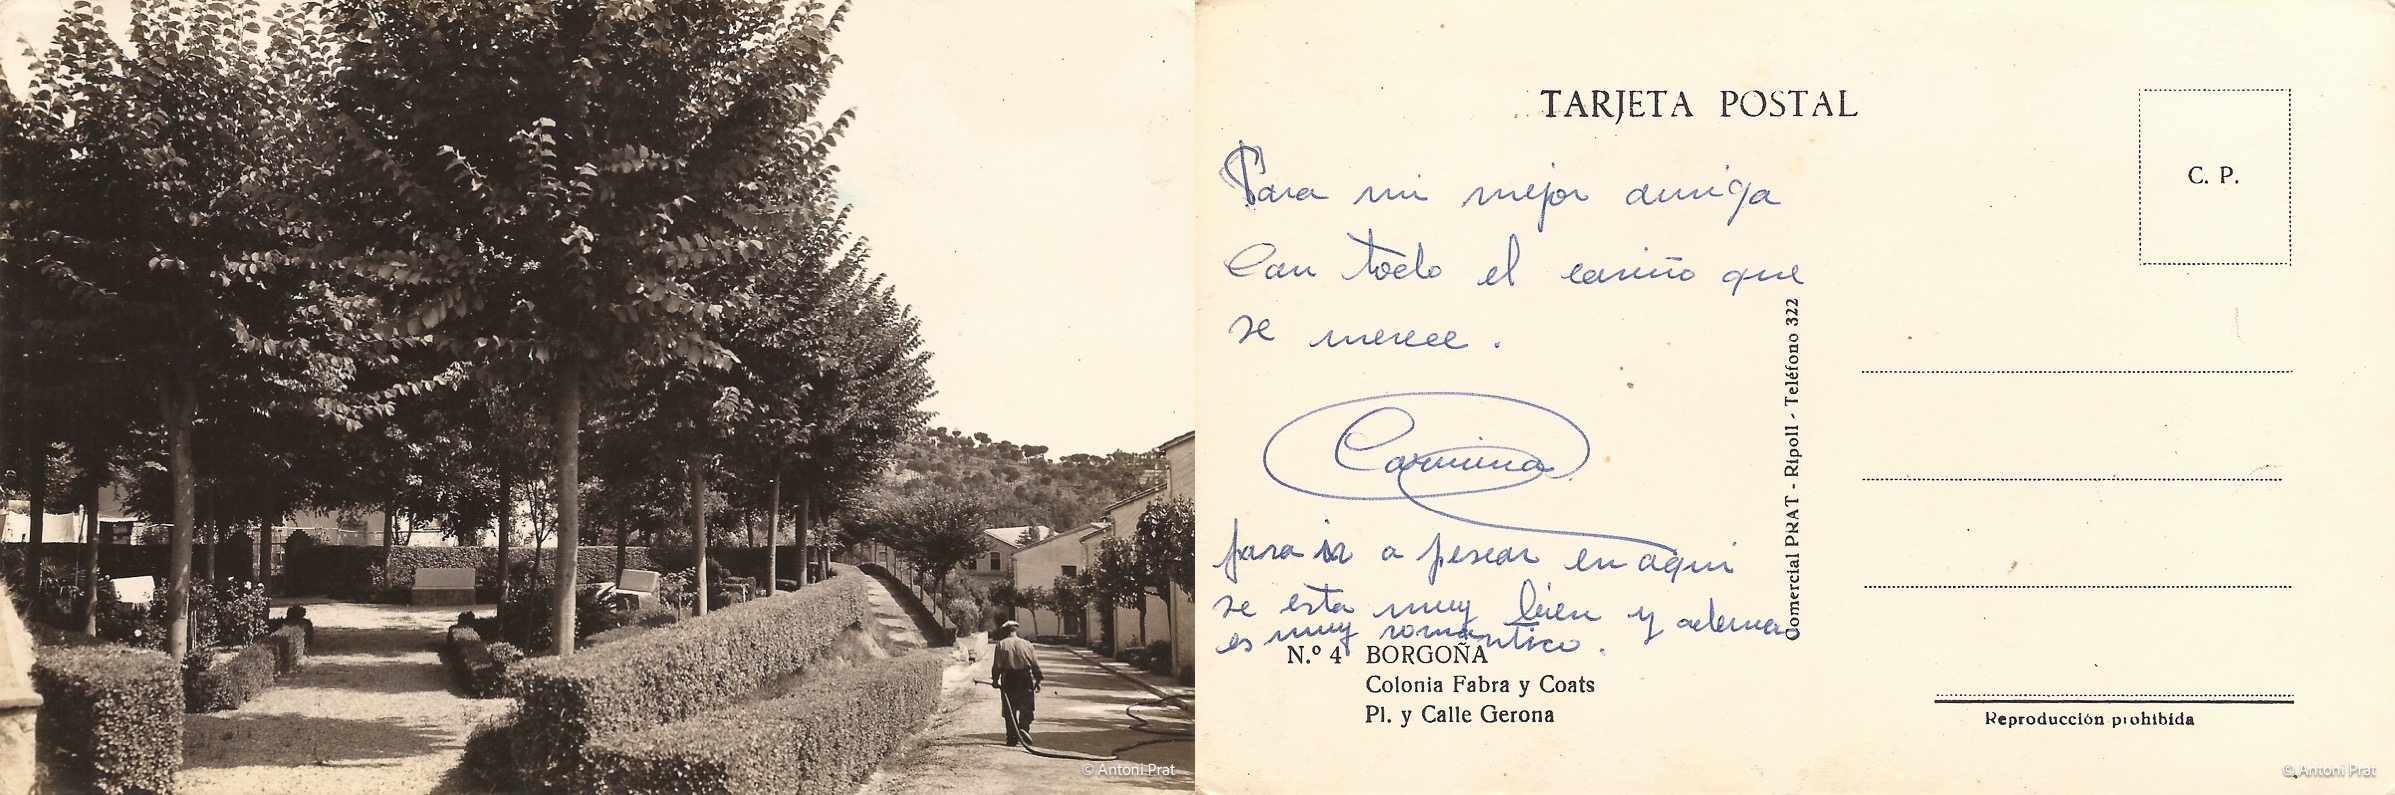 © Antoni Prat
TARJETA POSTAL
C. P.
Para mi mejor amiga
Con todo el cariño que
se merece.
Carmina
para ir a pescar en aqui
se esta muy bien y ademas
es muy romantico.
Comercial PRAT - Ripoll - Teléfono 322
N.º 4 BORGOÑA
Colonia Fabra y Coats
Pl. y Calle Gerona
Reproducción prohibida
© Antoni Prat